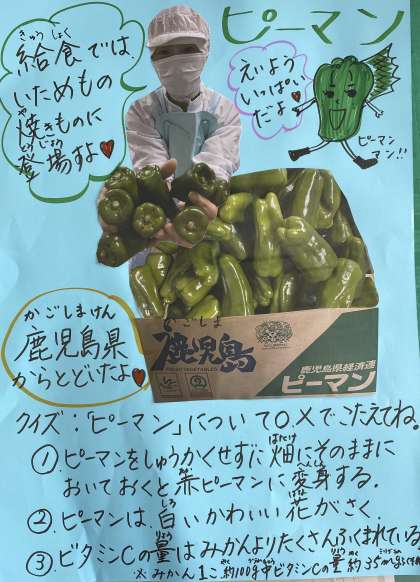 ピーマン
給食では、
きゅうしょく
いためもの
焼きものに
や
登場するよ
とうじょう
えいよう
いっぱい
だよ
ピーマン
マン!!
かごしまけん
鹿児島県
からとどいたよ
かごしま
鹿児島
鹿児島県経済連
ピーマン
クイズ:「ピーマン」について○、×でこたえてね。
①ピーマンをしゅうかくせずに畑にそのままに
はたけ
おいておくと赤ピーマンに変身する。
へんしん
②ピーマンは、白いかわいい花がさく。
しろ
はな
③ビタミンCの量はみかんよりたくさんふくまれている
りょう
※みかん1こ約100g中ビタミンCの量約35mg